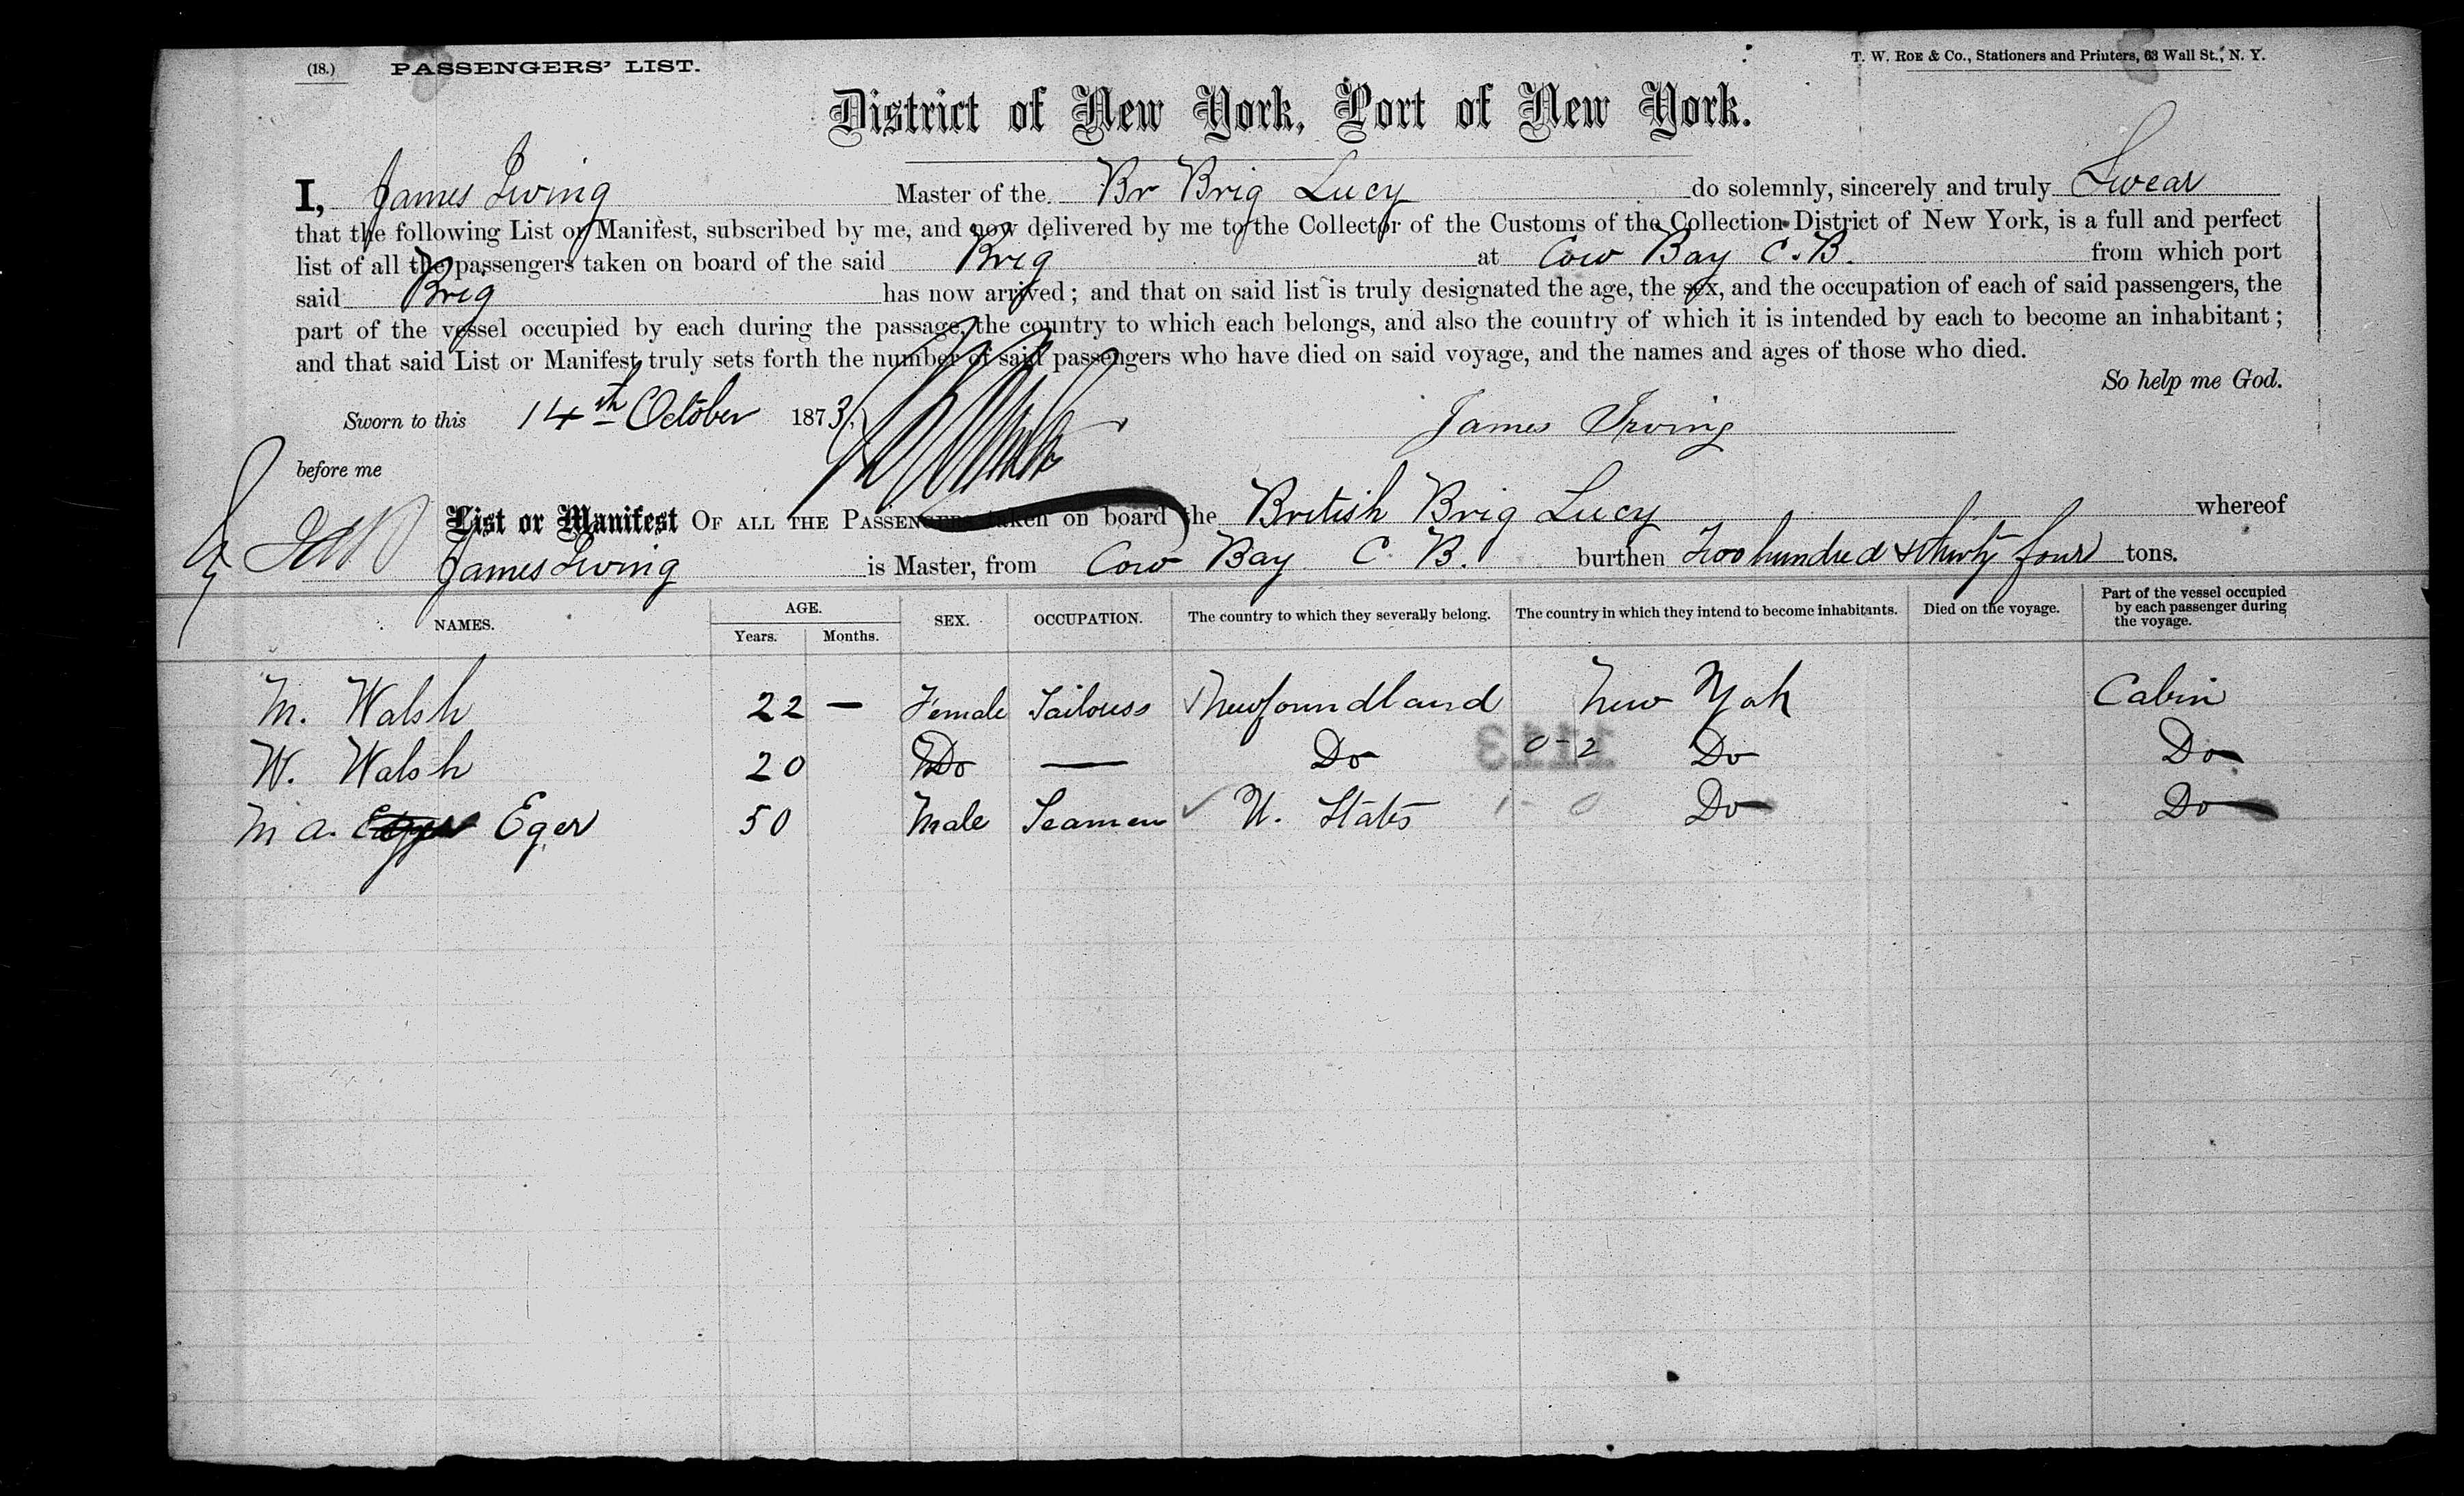 (18.) PASSENGERS' LIST.
T. W. ROE & Co., Stationers and Printers, 63 Wall St., N. Y.
District of New York, Port of New York.
I, James Irving Master of the Br Brig Lucy do solemnly, sincerely and truly Swear
that the following List or Manifest, subscribed by me, and now delivered by me to the Collector of the Customs of the Collection District of New York, is a full and perfect
list of all the passengers taken on board of the said Brig at Cow Bay C.B. from which port
said Brig has now arrived; and that on said list is truly designated the age, the sex, and the occupation of each of said passengers, the
part of the vessel occupied by each during the passage, the country to which each belongs, and also the country of which it is intended by each to become an inhabitant;
and that said List or Manifest truly sets forth the number of said passengers who have died on said voyage, and the names and ages of those who died.
So help me God.
Sworn to this 14th October 1873,
James Irving
before me
List or Manifest OF ALL THE PASSENGERS taken on board the British Brig Lucy whereof
James Irving is Master, from Cow Bay C B. burthen Two hundred & thirty four tons.
NAMES. AGE. Years. Months. SEX. OCCUPATION. The country to which they severally belong. The country in which they intend to become inhabitants. Died on the voyage. Part of the vessel occupied by each passenger during the voyage.
M. Walsh 22 — Female Tailoress Newfoundland New York Cabin
W. Walsh 20 Do — Do 0-2 Do Do
1113
M A. Eger 50 Male Seaman U. States 1-0 Do Do